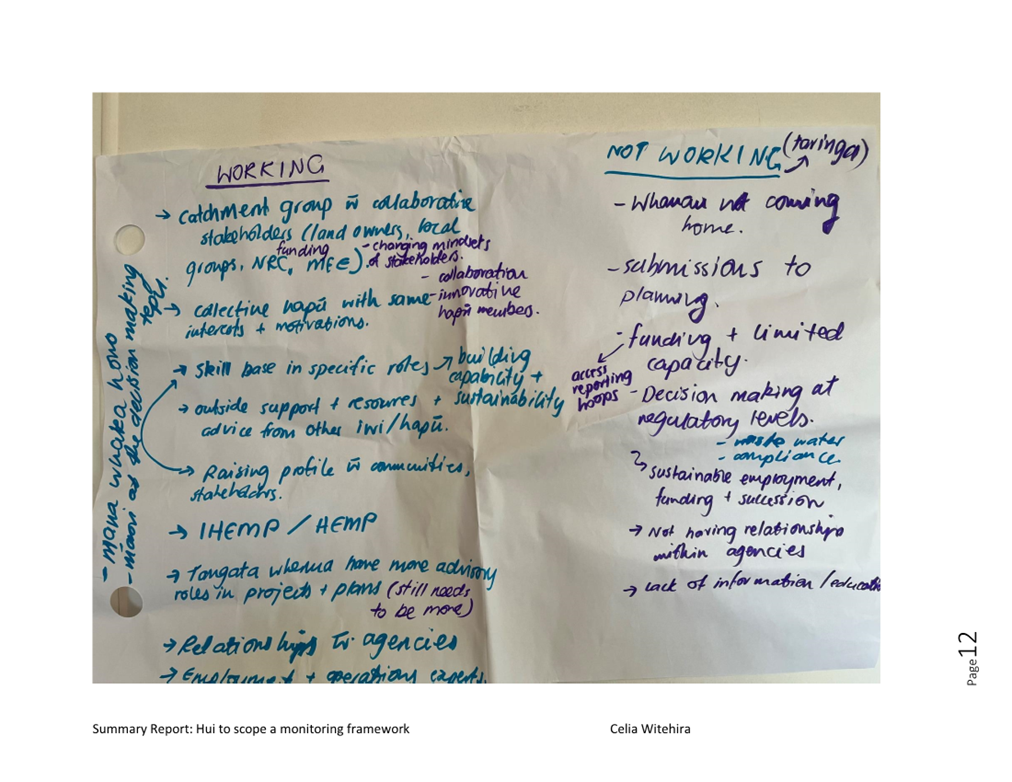 WORKING
→ catchment group w̄ collaborative
stakeholders (land owners, local
groups, NRC, MFE)
funding
- changing mindsets
of stakeholders.
- collaboration
- innovative
hapū members.
→ collective hapū with same
interests + motivations.
→ skill base in specific roles → building
capability +
sustainability
→ outside support + resources +
advice from other iwi/hapū.
→ Raising profile w̄ communities,
stakeholders.
→ IHEMP / HEMP
→ Tangata whenua have more advisory
roles in projects + plans (still needs
to be more)
→ Relationships w̄ agencies
→ Employment + operations experts.
- mana whaka hono
- māori at the decision making
NOT WORKING (taringa)
- Whanau not coming
home.
- submissions to
planning.
- funding + limited
capacity.
access
reporting
hoops
- Decision making at
regulatory levels.
- waste water
- compliance
sustainable employment,
funding + succession
→ Not having relationships
within agencies
→ Lack of information /
Summary Report: Hui to scope a monitoring framework
Celia Witehira
Page 12